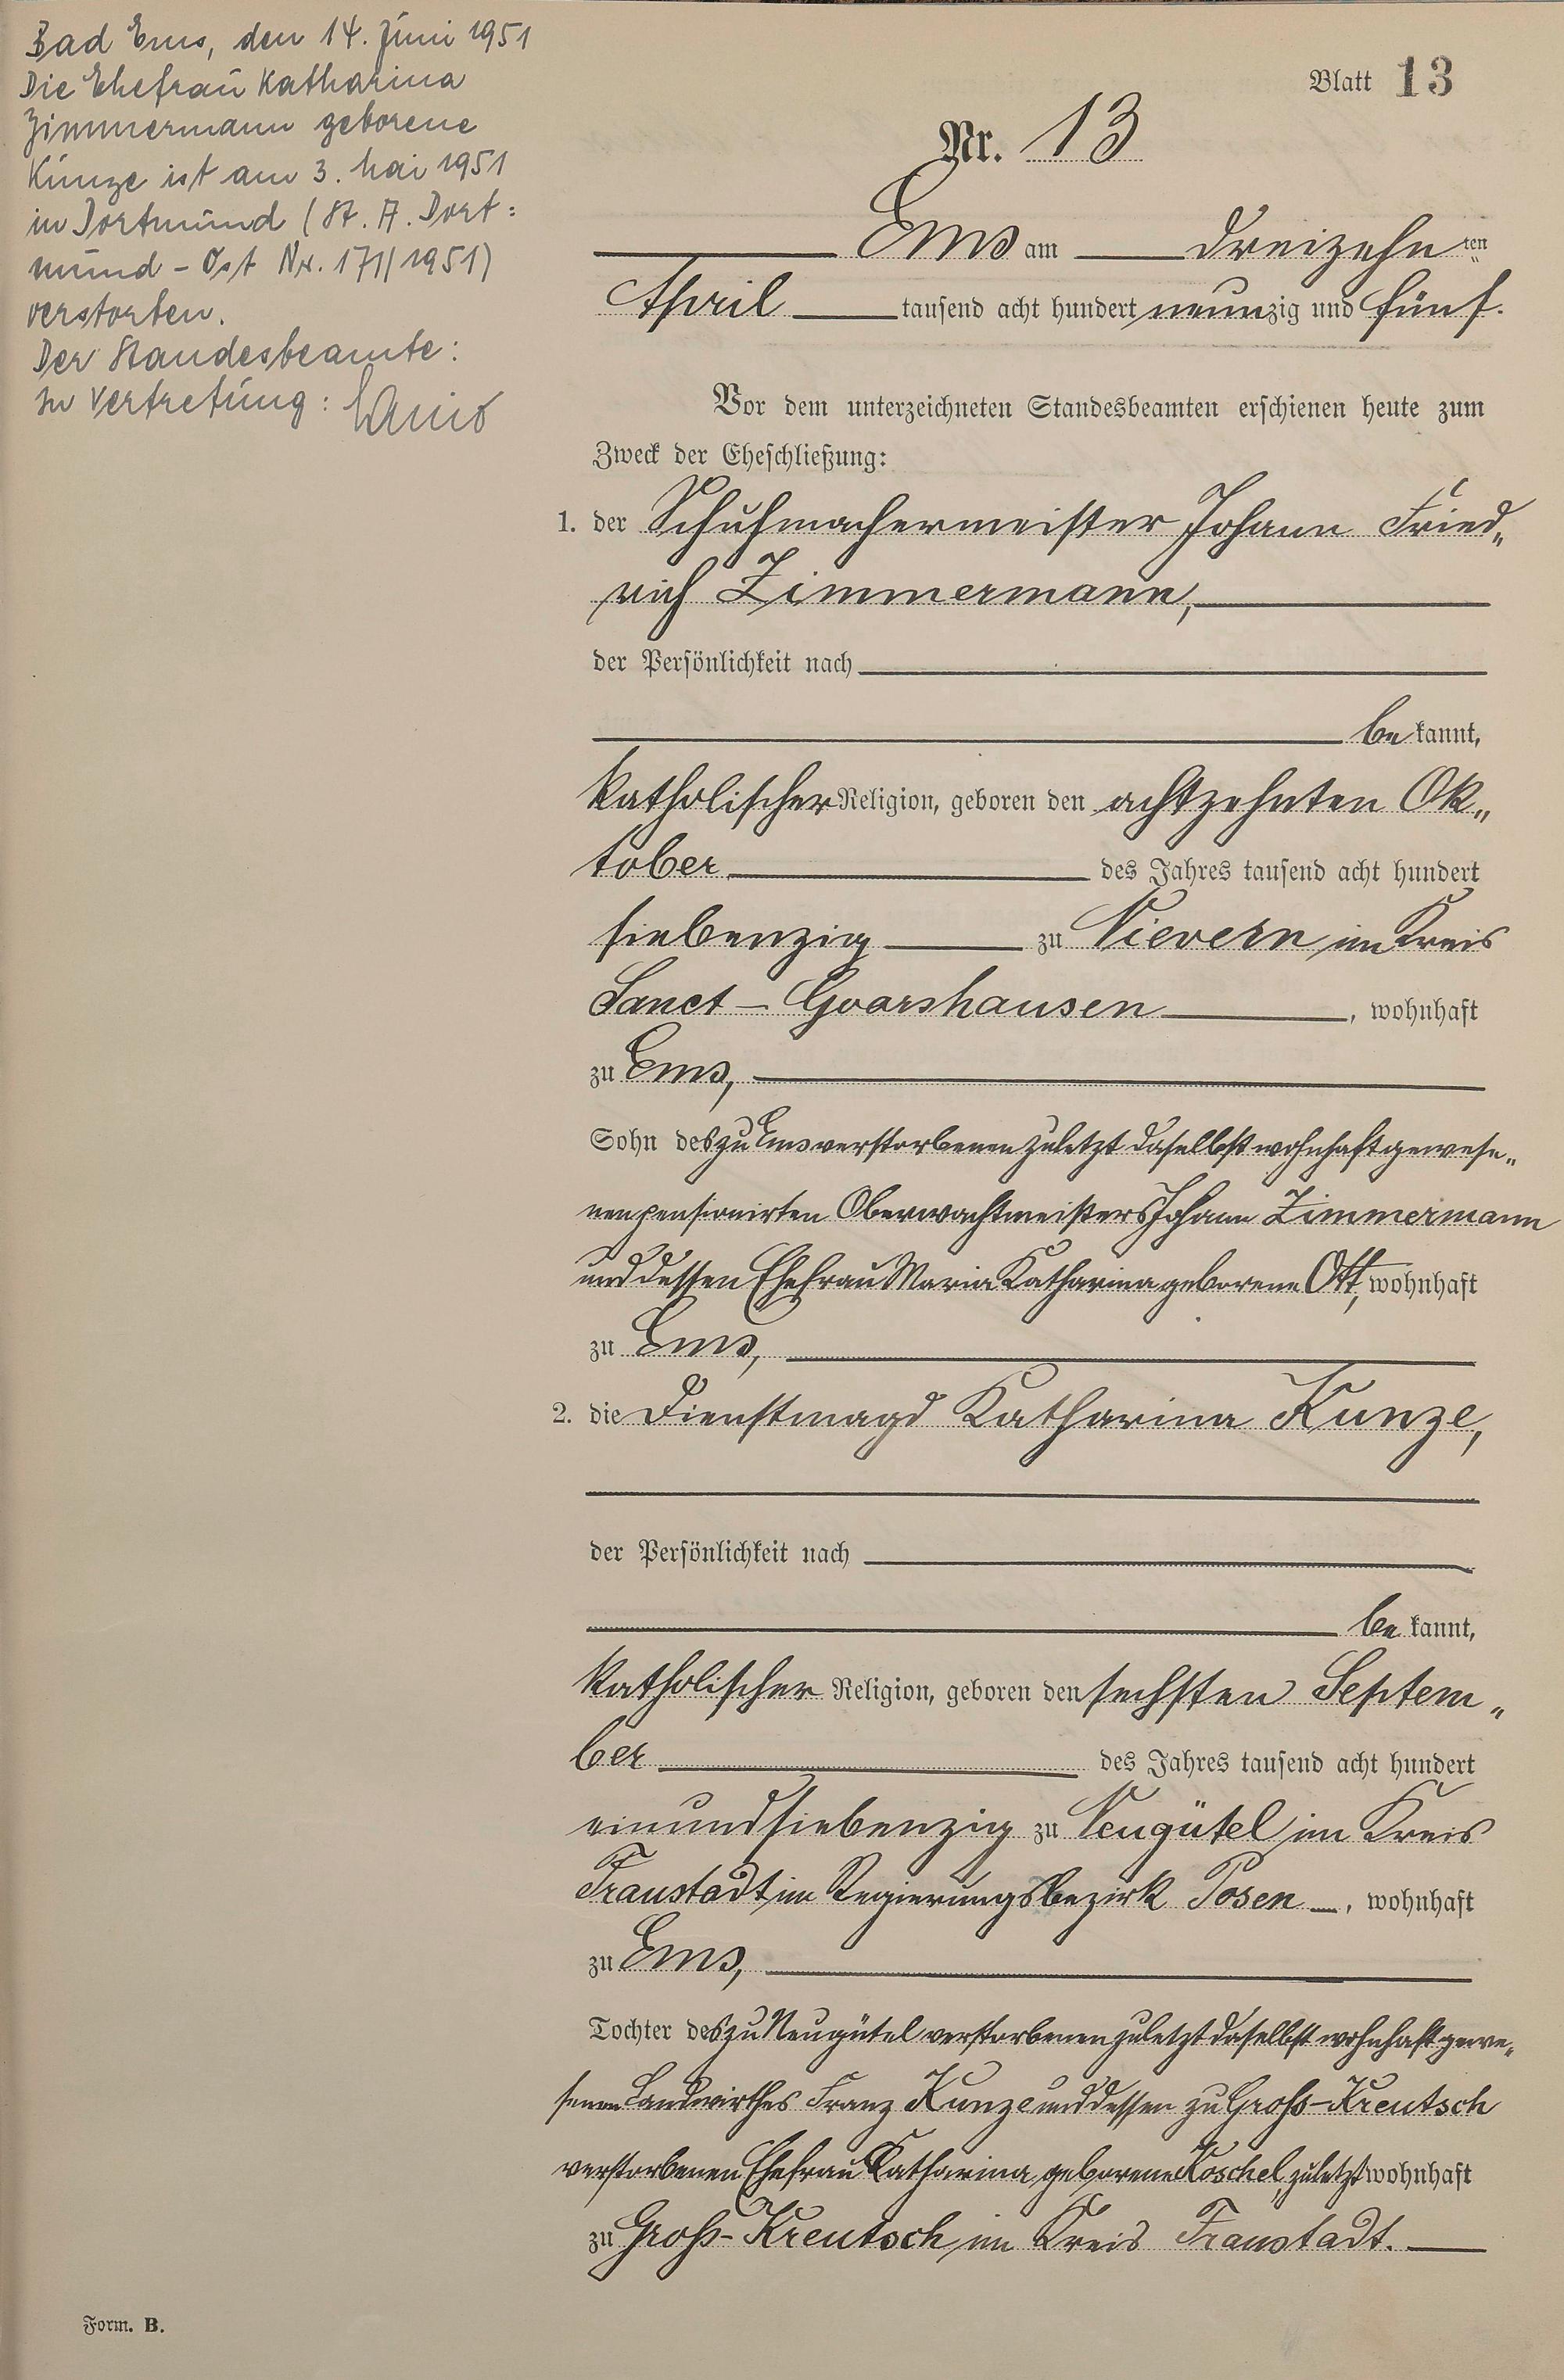 Bad Ems, den 14. Juni 1951
Die Ehefrau Katharina
Zimmermann geborene
Kunze ist am 3. Mai 1951
in Dortmund (St. A. Dort=
mund - Ost Nr. 171/1951)
verstorben.
Der Standesbeamte:
In Vertretung:
Blatt 13
Nr. 13
Ems am dreizehn ten
April tausend acht hundert neunzig und fünf.
Vor dem unterzeichneten Standesbeamten erschienen heute zum
Zweck der Eheschließung:
1. der Schuhmachermeister Johann Fried„
rich Zimmermann,
der Persönlichkeit nach
be kannt,
katholischer Religion, geboren den achtzehnten Ok„
tober des Jahres tausend acht hundert
siebenzig zu Nievern im Kreis
Sanct - Goarshausen, wohnhaft
zu Ems,
Sohn des zu Ems verstorbenen zuletzt daselbst wohnhaft gewese„
nen pensionirten Oberwachtmeisters Johann Zimmermann
und dessen Ehefrau Maria Katharina geborene Ott, wohnhaft
zu Ems,
2. die Dienstmagd Katharina Kunze,
der Persönlichkeit nach
be kannt,
katholischer Religion, geboren den sechsten Septem„
ber des Jahres tausend acht hundert
einundsiebenzig zu Neugütel im Kreis
Fraustadt im Regierungsbezirk Posen, wohnhaft
zu Ems,
Tochter des zu Neugütel verstorbenen zuletzt daselbst wohnhaft gewe„
senen Landwirthes Franz Kunze und dessen zu Groß-Kreutsch
verstorbenen Ehefrau Katharina geborene Köschel, zuletzt wohnhaft
zu Groß-Kreutsch im Kreis Fraustadt.
Form. B.